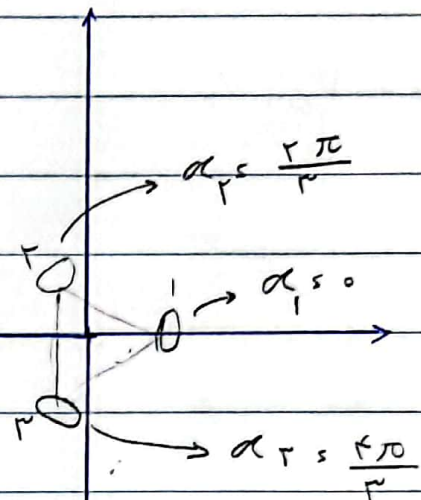 α_۲ = ۲π/۳
۲
۱
α_۱ = ۰
۳
α_۳ = ۴π/۳